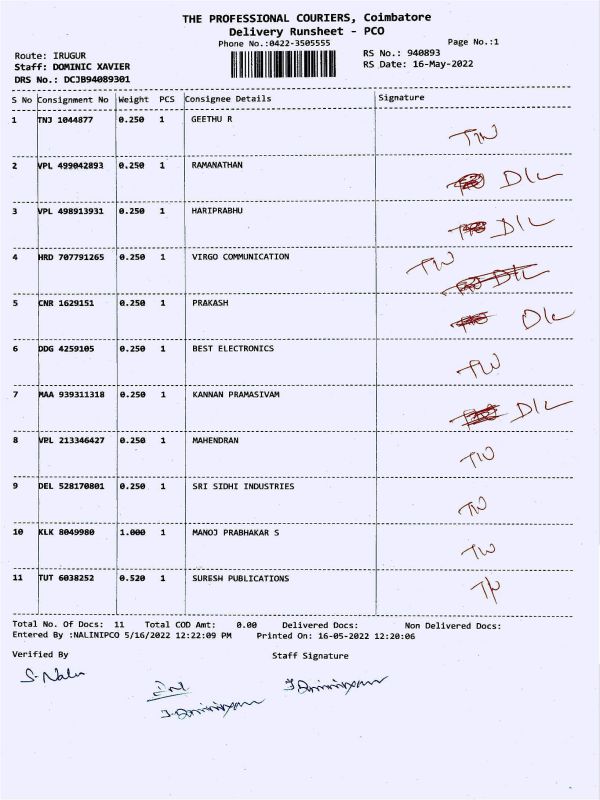 THE PROFESSIONAL COURIERS, Coimbatore
Delivery Runsheet - PCO
Phone No.:0422-3505555 Page No.:1
Route: IRUGUR RS No.: 940893
Staff: DOMINIC XAVIER RS Date: 16-May-2022
DRS No.: DCJB94089301
S No Consignment No Weight PCS Consignee Details Signature
1 TNJ 1044877 0.250 1 GEETHU R TW
2 VPL 499042893 0.250 1 RAMANATHAN D/L
3 VPL 498913931 0.250 1 HARIPRABHU D/L
4 HRD 707791265 0.250 1 VIRGO COMMUNICATION TW
5 CNR 1629151 0.250 1 PRAKASH D/L
6 DDG 4259105 0.250 1 BEST ELECTRONICS TW
7 MAA 939311318 0.250 1 KANNAN PRAMASIVAM D/L
8 VPL 213346427 0.250 1 MAHENDRAN TW
9 DEL 528170801 0.250 1 SRI SIDHI INDUSTRIES TW
10 KLK 8049980 1.000 1 MANOJ PRABHAKAR S TW
11 TUT 6038252 0.520 1 SURESH PUBLICATIONS TW
Total No. Of Docs: 11 Total COD Amt: 0.00 Delivered Docs: Non Delivered Docs:
Entered By :NALINIPCO 5/16/2022 12:22:09 PM Printed On: 16-05-2022 12:20:06
Verified By Staff Signature